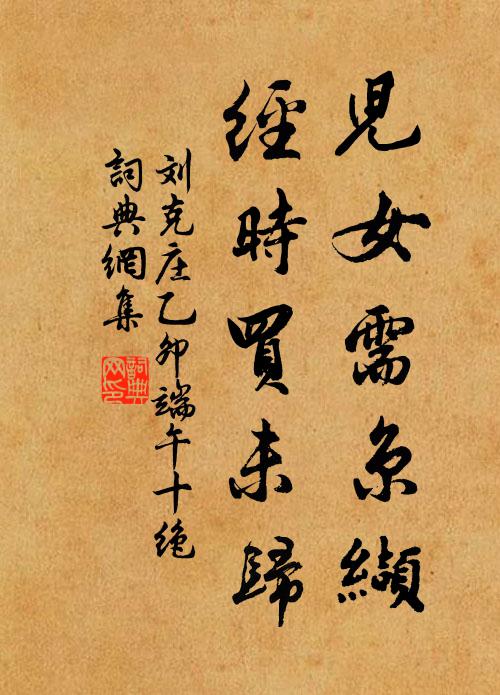 児女需糸纈
經時買未歸
刘克庄乙卯端午十绝
詞典網集
詞典
网印